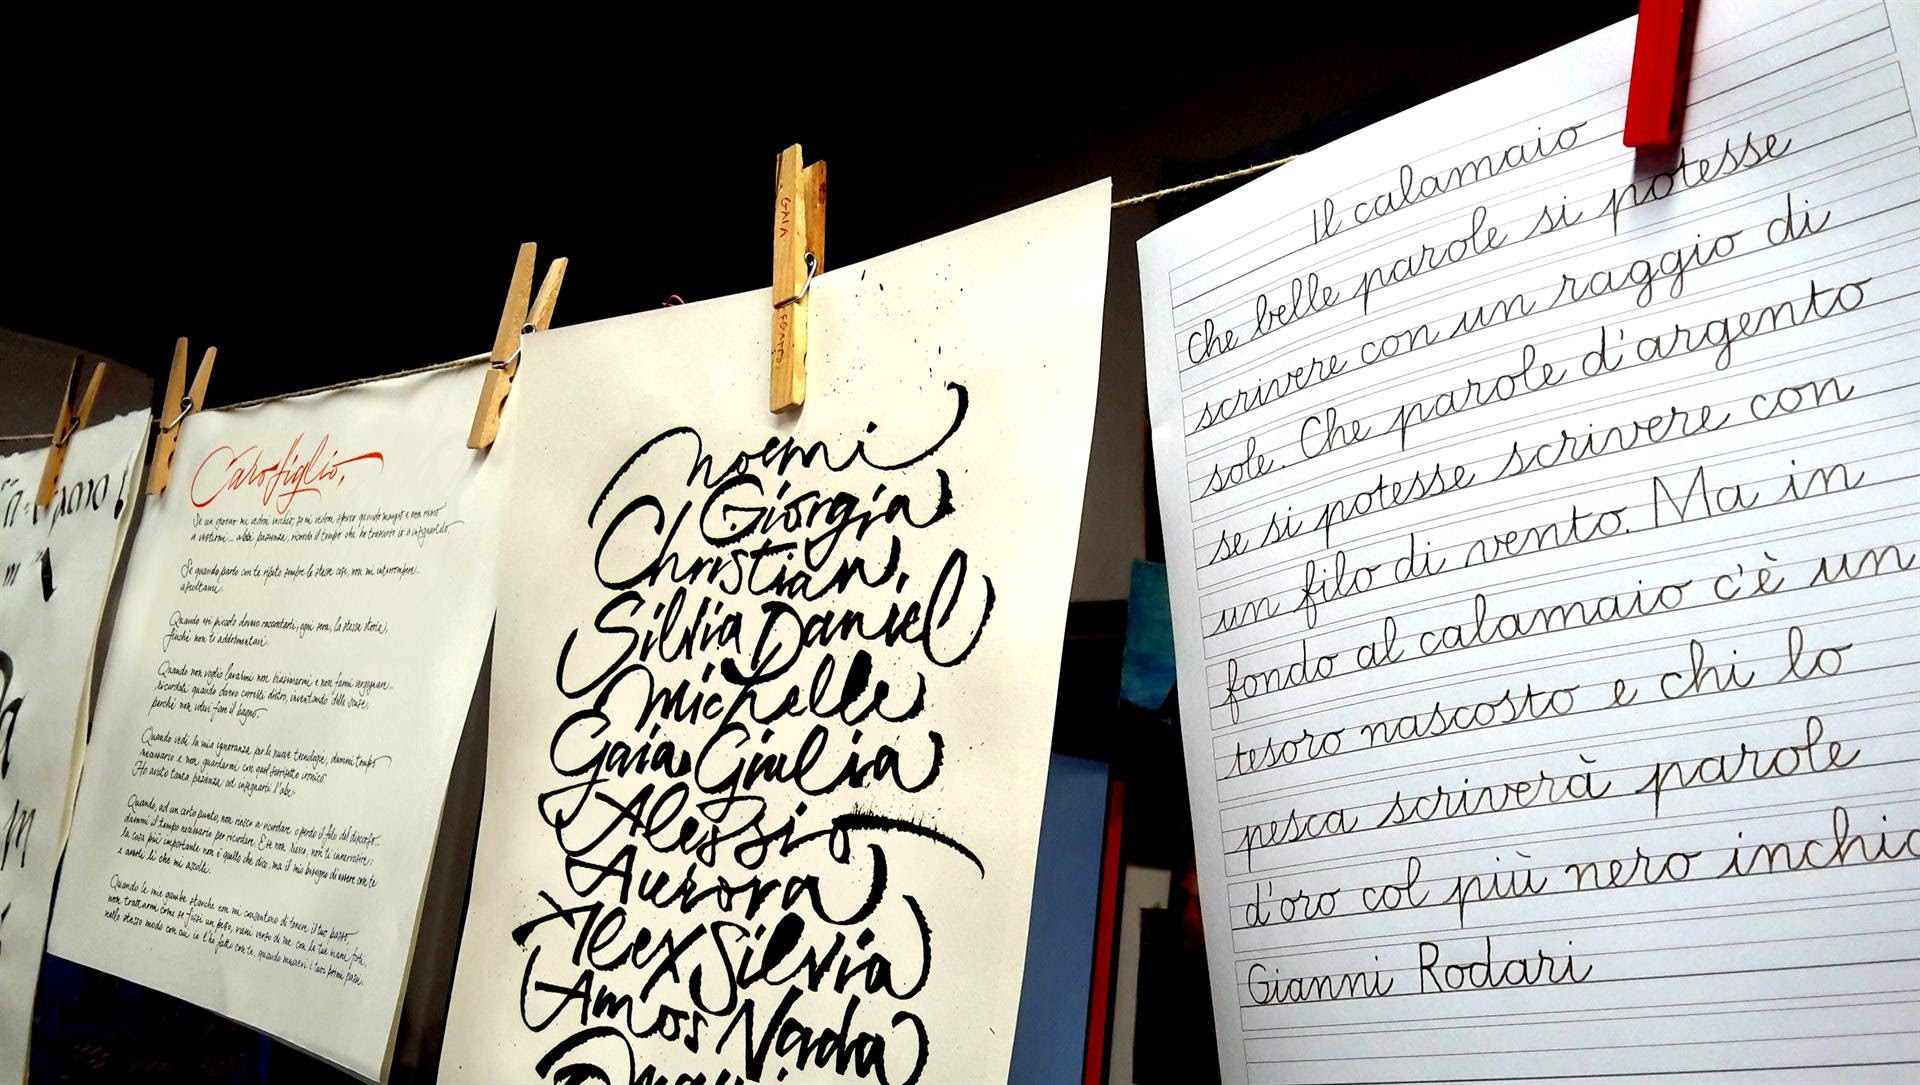 Caro figlio,
Se un giorno mi vedrai vecchio, se mi vedrai sporco quando mangio e non riesco
a vestirmi... abbi pazienza, ricorda il tempo che ho trascorso io a insegnartelo.
Se quando parlo con te ripeto sempre le stesse cose, non mi interrompere...
ascoltami.
Quando eri piccolo dovevo raccontarti, ogni sera, la stessa storia,
finché non ti addormentavi.
Quando non voglio lavarmi non biasimarmi e non farmi vergognare...
ricordati quando dovevo correrti dietro, inventando delle scuse,
perché non volevi fare il bagno.
Quando vedi la mia ignoranza per le nuove tecnologie, dammi tempo
necessario e non guardarmi con quel sorrisetto ironico.
Ho avuto tanta pazienza ad insegnarti l'abc.
Quando, ad un certo punto, non riesco a ricordare o perdo il filo del discorso...
dammi il tempo necessario per ricordare. E se non riesco, non ti innervosire:
la cosa più importante non è quello che dico, ma il mio bisogno di essere con te
e averti lì che mi ascolti.
Quando le mie gambe stanche non mi consentono di tenere il tuo passo,
non trattarmi come se fossi un peso, vieni verso di me con le tue mani forti,
nello stesso modo con cui io l'ho fatto con te, quando muovevi i tuoi primi passi.
GAIA
FORATO
Noemi
Giorgia
Christian,
Silvia Daniel
Michelle
Gaia Giulia
Alessio
Aurora
Alex Silvia
Amos Nada
Il calamaio
Che belle parole si potesse
scrivere con un raggio di
sole. Che parole d'argento
se si potesse scrivere con
un filo di vento. Ma in
fondo al calamaio c'è un
tesoro nascosto e chi lo
pesca scriverà parole
d'oro col più nero inchio
Gianni Rodari